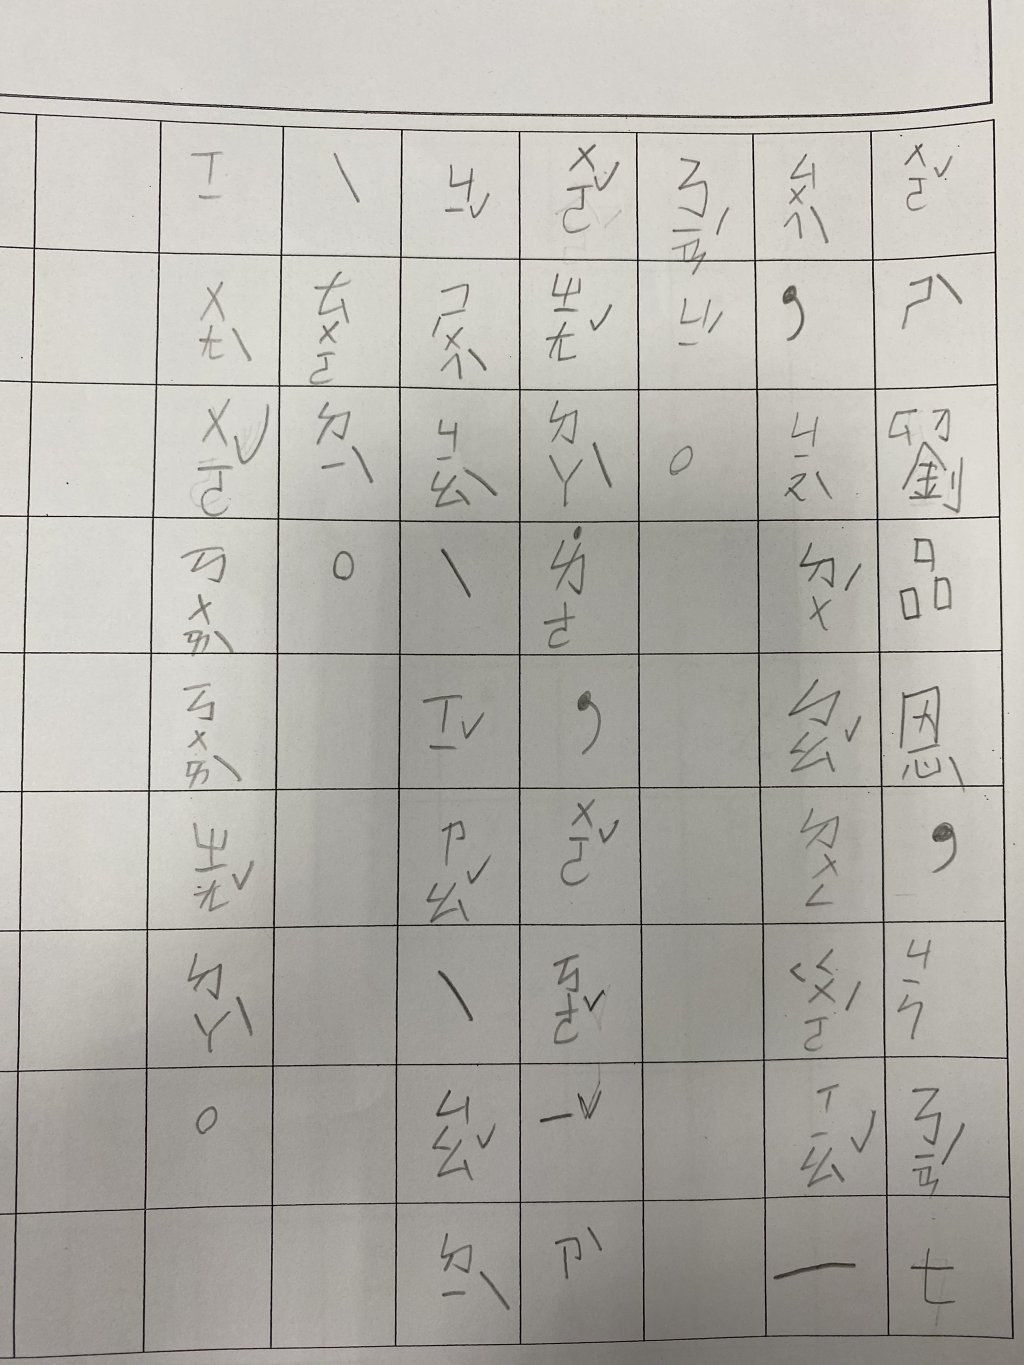 ㄨㄛˇㄕˋ劉品恩，ㄐㄧㄣㄋㄧㄢˊ七
ㄙㄨㄟˋ，ㄐㄧㄡˋㄉㄨˊㄅㄠˇㄍㄨㄛˊㄒㄧㄠˇ一
ㄋㄧㄢˊㄐㄧˊ。
ㄨㄛˇㄓㄤˇㄉㄚˋ˙ㄌㄜ，ㄨㄛˇㄎㄜˇㄧˇㄗˋ
ㄐㄧˇㄕㄨㄟˋㄐㄧㄠˋ、ㄒㄧˇㄗㄠˇ、ㄙㄠˇㄉㄧˋ
、ㄊㄨㄛㄉㄧˋ。
ㄒㄧㄨㄤˋㄨㄛˇㄎㄨㄞˋㄎㄨㄞˋㄓㄤˇㄉㄚˋ。